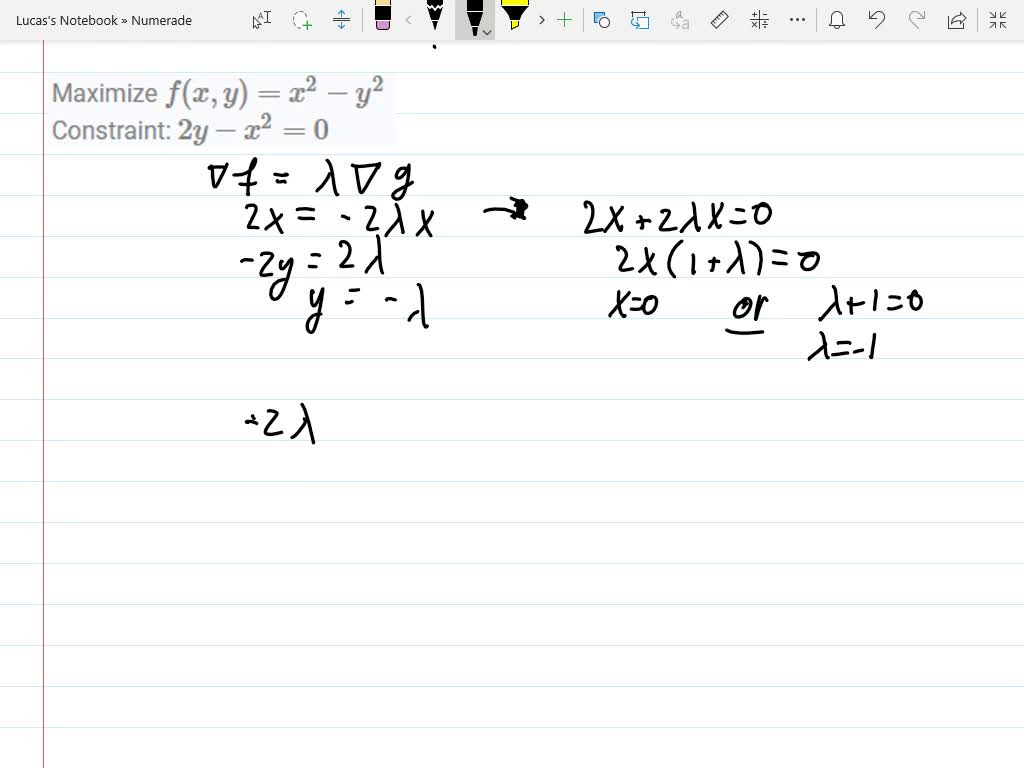 Lucas's Notebook » Numerade
Maximize f(x, y) = x² − y²
Constraint: 2y − x² = 0
∇f = λ∇g
2x = -2λx → 2x+2λx=0
-2y = 2λ 2x(1+λ)=0
y = -λ x=0 or λ+1=0
λ=-1
-2λ